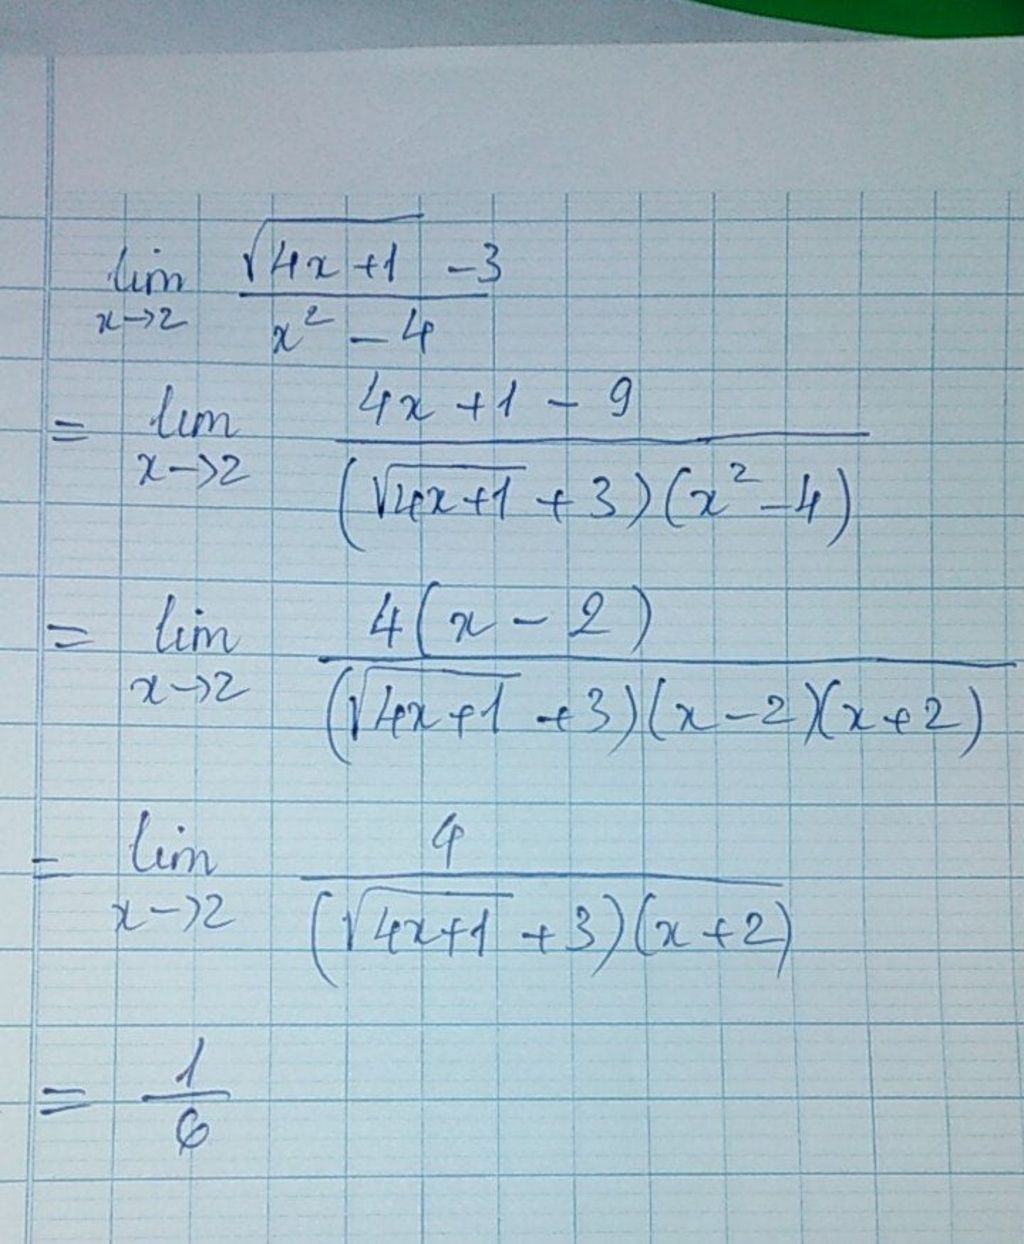 lim x→2 (√(4x+1) - 3)/(x² - 4)
= lim x→2 (4x+1-9)/((√(4x+1) + 3)(x² - 4))
= lim x→2 4(x-2)/((√(4x+1) + 3)(x-2)(x+2))
= lim x→2 4/((√(4x+1) + 3)(x+2))
= 1/6